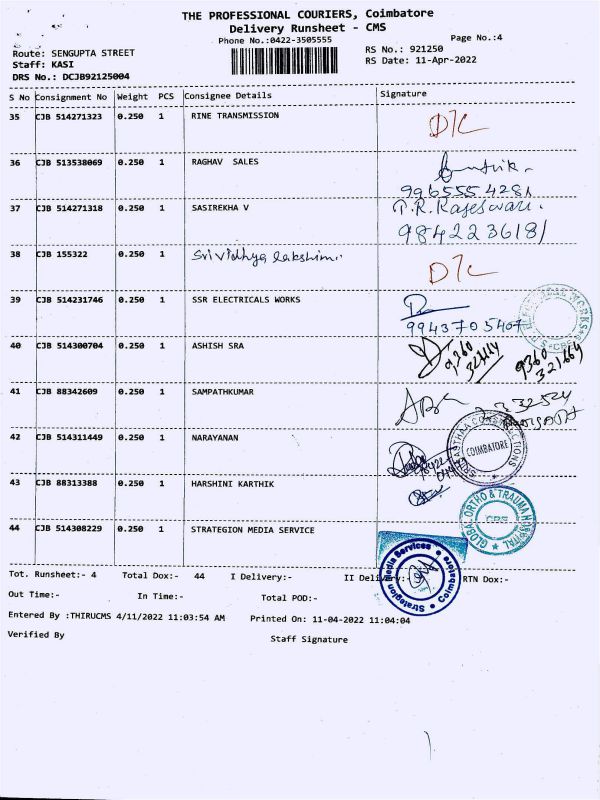 THE PROFESSIONAL COURIERS, Coimbatore
Delivery Runsheet - CMS
Page No.:4
Phone No.:0422-3505555
Route: SENGUPTA STREET
RS No.: 921250
Staff: KASI
RS Date: 11-Apr-2022
DRS No.: DCJB92125004
S No Consignment No Weight PCS Consignee Details Signature
35 CJB 514271323 0.250 1 RINE TRANSMISSION D/C
36 CJB 513538069 0.250 1 RAGHAV SALES
9965554281
37 CJB 514271318 0.250 1 SASIREKHA V P.R. Rajeswari.
9842236181
38 CJB 155322 0.250 1 Srividhya lakshimi. D/C
39 CJB 514231746 0.250 1 SSR ELECTRICALS WORKS
9943705407
40 CJB 514300704 0.250 1 ASHISH SRA 9360
321664
41 CJB 88342609 0.250 1 SAMPATHKUMAR
42 CJB 514311449 0.250 1 NARAYANAN COIMBATORE
43 CJB 88313388 0.250 1 HARSHINI KARTHIK
GLOBAL ORTHO & TRAUMA HOSPITAL
CBE
44 CJB 514308229 0.250 1 STRATEGION MEDIA SERVICE
Strategion Media Services Coimbatore
Tot. Runsheet:- 4 Total Dox:- 44 I Delivery:- II Delivery:- RTN Dox:-
Out Time:- In Time:- Total POD:-
Entered By :THIRUCMS 4/11/2022 11:03:54 AM Printed On: 11-04-2022 11:04:04
Verified By Staff Signature